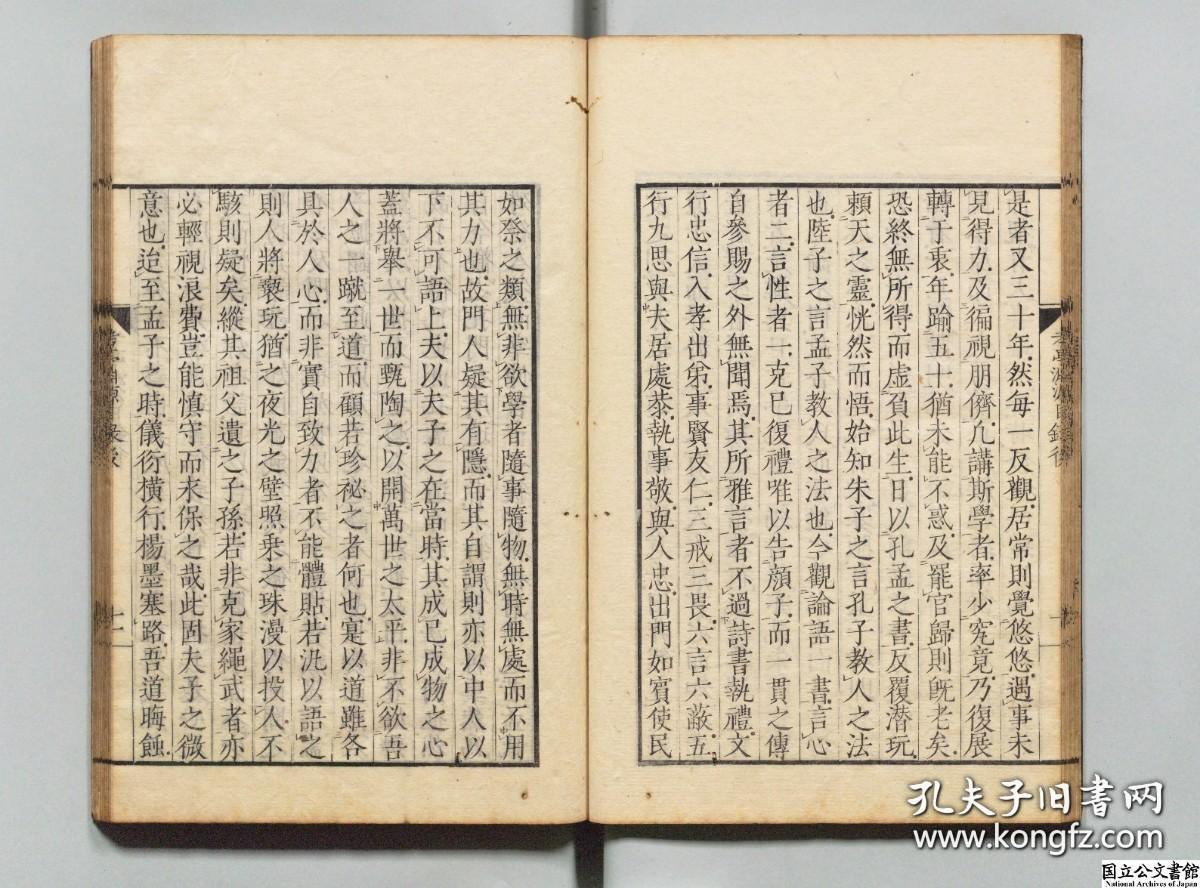 是者又三十年然每一反觀居常則覺悠悠遇事未
見得力及徧視朋儕凢講斯學者率少究竟乃復展
轉于衷年踰五十猶未能不惑及罷官歸則旣老矣
恐終無所得而虚負此生日以孔孟之書反覆潛玩
頼天之靈恍然而悟始知朱子之言孔子教人之法
也陸子之言孟子教人之法也今觀論語一書言心
者二言性者一克已復禮唯以告顔子而一貫之傳
自參賜之外無聞焉其所雅言者不過詩書執禮文
行忠信入孝出弟事賢友仁三戒三畏六言六蔽五
行九思與夫居處恭執事敬與人忠出門如賓使民
如祭之類無非欲學者隨事隨物無時無處而不用
其力也故門人疑其有隱而其自謂則亦以中人以
下不可語上夫以夫子之在當時其成已成物之心
蓋將舉一世而甄陶之以開萬世之太平非不欲吾
人之一蹴至道而顧若珍祕之者何也寔以道雖各
具於人心而非實自致力者不能體貼若汎以語之
則人將褻玩猶之夜光之璧照乗之珠漫以投人不
駭則疑矣縱其祖父遺之子孫若非克家繩武者亦
必輕視浪費豈能慎守而來保之哉此固夫子之微
意也迨至孟子之時儀衍横行楊墨塞路吾道晦蝕
孔夫子旧書网
www.kongfz.com
国立公文書館
National Archives of Japan